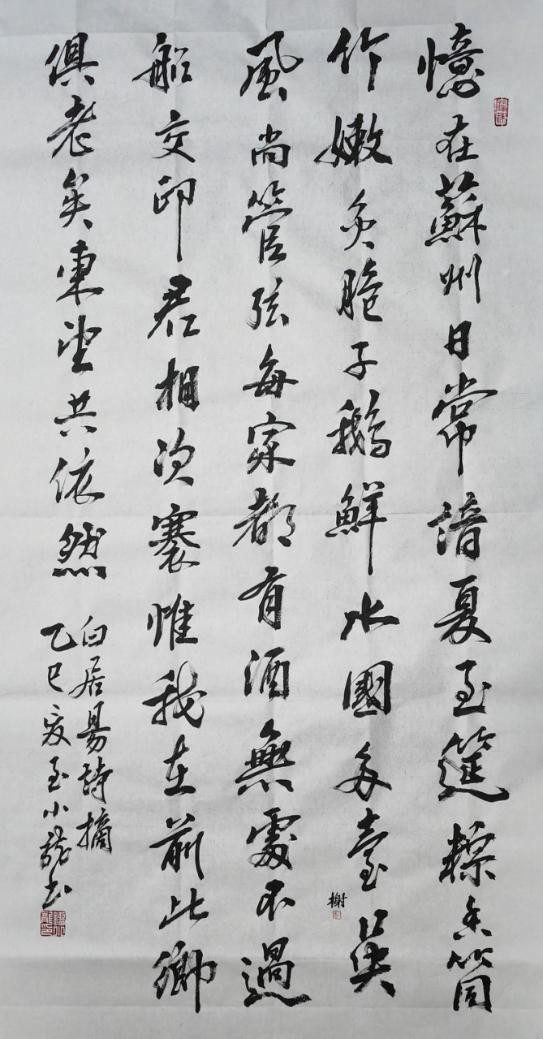 憶在蘇州日常諳夏至筵粽香筒
竹嫩炙脆子鵝鮮水國多臺榭吳
風尚管弦每家都有酒無處不過
船交印君相次褰惟我在前此鄉
俱老矣東望共依然
白居易詩摘
乙巳夏至小龍書